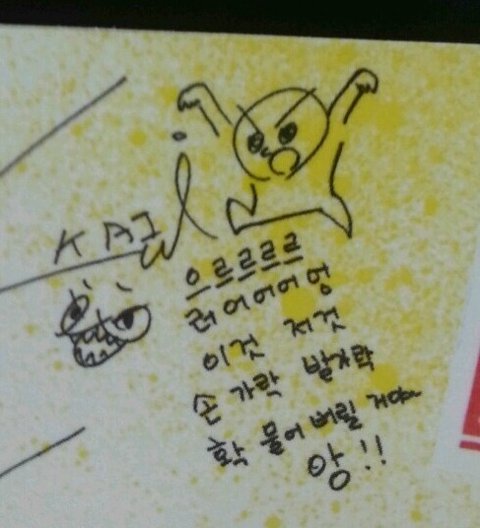 으르르르르
러어어어엉
이것 저것
손 가락 발가락
확 물어 버릴 거야~
앙!!